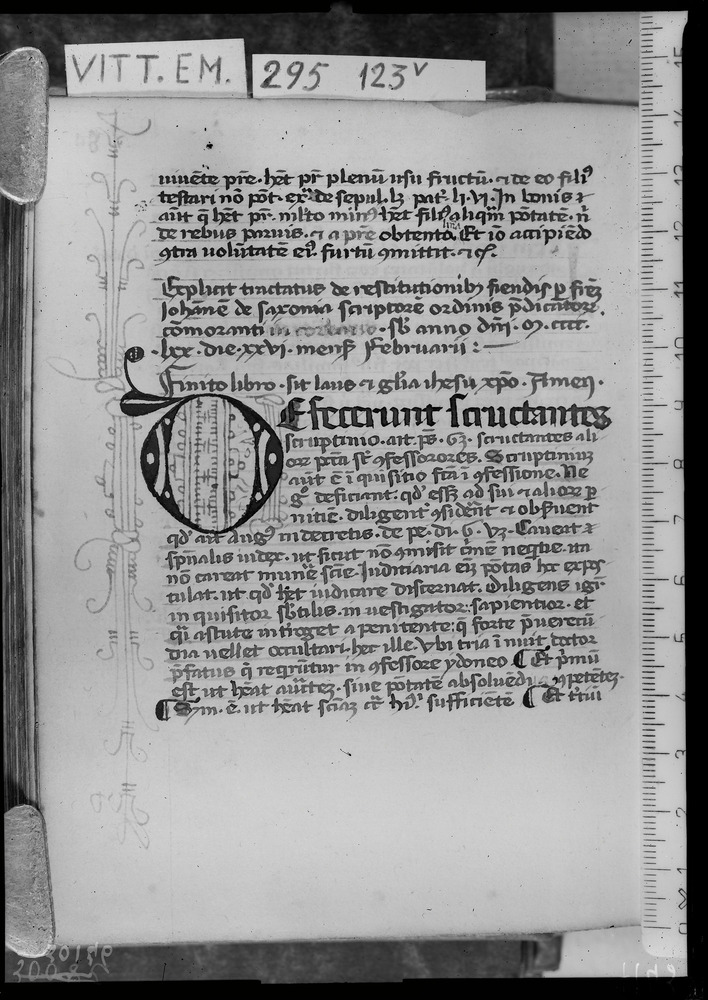 VITT. EM. 295 123v
uiuēte pr̄e · hēt pr̄ plenū usū fructū · ⁊ de eo filiꝰ
testari nō pōt · ex̄ · de sepul · lꝫ pat̄ · li · vi · In bonis
aūt q̄ hēt pr̄ · aliqm̄ pōtatē · n̄
de rebus paruis · ⁊ a pr̄e obtento · Et iō accipiēdo
ꝯtra uolūtatē eiꝰ furtū ꝯmittit · ⁊c̄ ·
Explicit tractatus de restitutionibꝰ fiendis ꝑ fr̄eꝫ
Johānē de saxonia scriptorē ordinis p̄dicatorꝫ
cōmoranti in · sb̄ anno dn̄i · m · cccc ·
lxx · die · xxvi · mens̄ februarii : —
Finito libro · sit laus ⁊ gl̄ia ihesu xp̄o · Amen ·
DEfecerunt scructantes
scruptinio · ait ps̄ · 63 · scructantes ali
oꝝ pc̄ta st̄ ꝯfessorores · Scruptiniuꝫ
aūt ē īquisitio fc̄ta ī ꝯfessione · Ne
gͦ deficiant · qd̄ ess̄ ad sui ⁊ alioꝝ ꝑ
nitiē · diligent̄ ꝯsidēnt ⁊ obẜuent
qd̄ ait Augꝰ in decretis · de pe · di · 6 · Caueat
sp̄ualis iudex · ut sicut nō ꝯmisit cͥmē neqͥtie · ita
nō careat munē sc̄ie · Iudiciaria eī pōtas hͦ expos
tulat · ut qd̄ hēt iudicare discernat · Diligens igͥ
inquisitor sb̄tilis · inuestigator : sapientior · et
q̄i astute introget a penitente : q̄ forte p̄uerecū
dia uellet occultari · hec ille · Vbi tria īnuit doctor
p̄fatus q̄ reqͥrūtur in ꝯfessore ydoneo ¶ Et pͥmū
est ut hēat auctēꝫ · siue pōtatē absoluēdi ꝯpetētēꝫ ·
¶ Sm̄ · ē · ut hēat sciāꝫ cͣ hͦ · sufficiētē ¶ Et tͥtiū